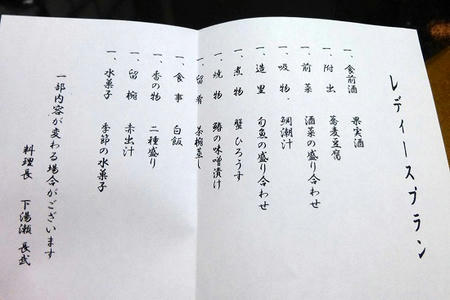 レディースプラン
一、食前酒 果実酒
一、附出 蕎麦豆腐
一、前菜 酒菜の盛り合わせ
一、吸物 鯛潮汁
一、造里 旬魚の盛り合わせ
一、煮物 蟹ひろうす
一、焼物 鰆の味噌漬け
一、留肴 茶椀蒸し
一、食事 白飯
一、香の物 二種盛り
一、留椀 赤出汁
一、水菓子 季節の水菓子
一部内容が変わる場合がございます
料理長 下湯瀬 長武